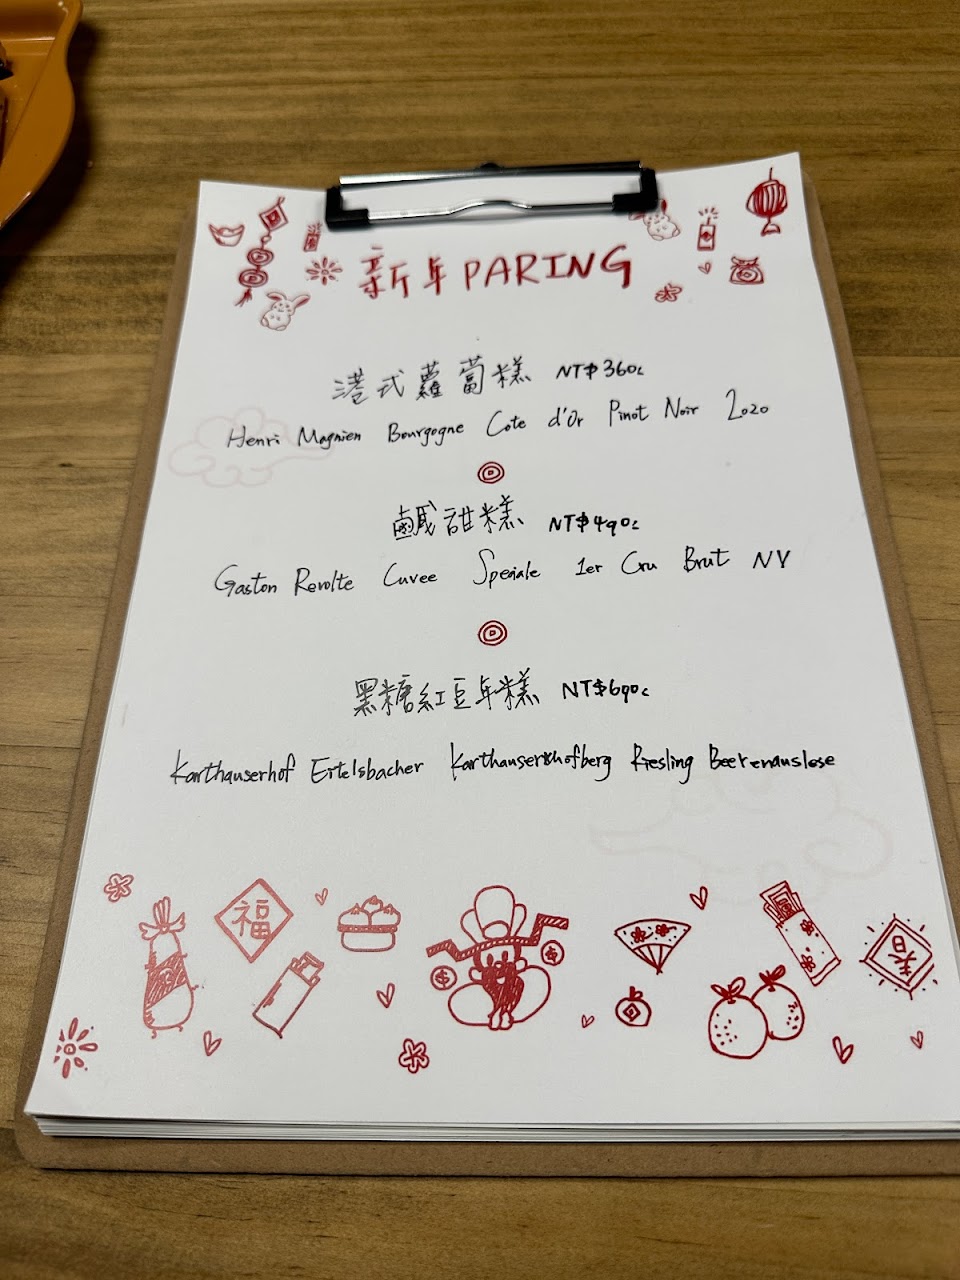 新年 PARING
港式蘿蔔糕 NT$360
Henri Magnien Bourgogne Cote d'Or Pinot Noir 2020
鹹甜糕 NT$490
Gaston Revolte Cuvee Speciale 1er Cru Brut NV
黑糖紅豆年糕 NT$690
Karthauserhof Eitelsbacher Karthauserhofberg Riesling Beerenauslese
福
春